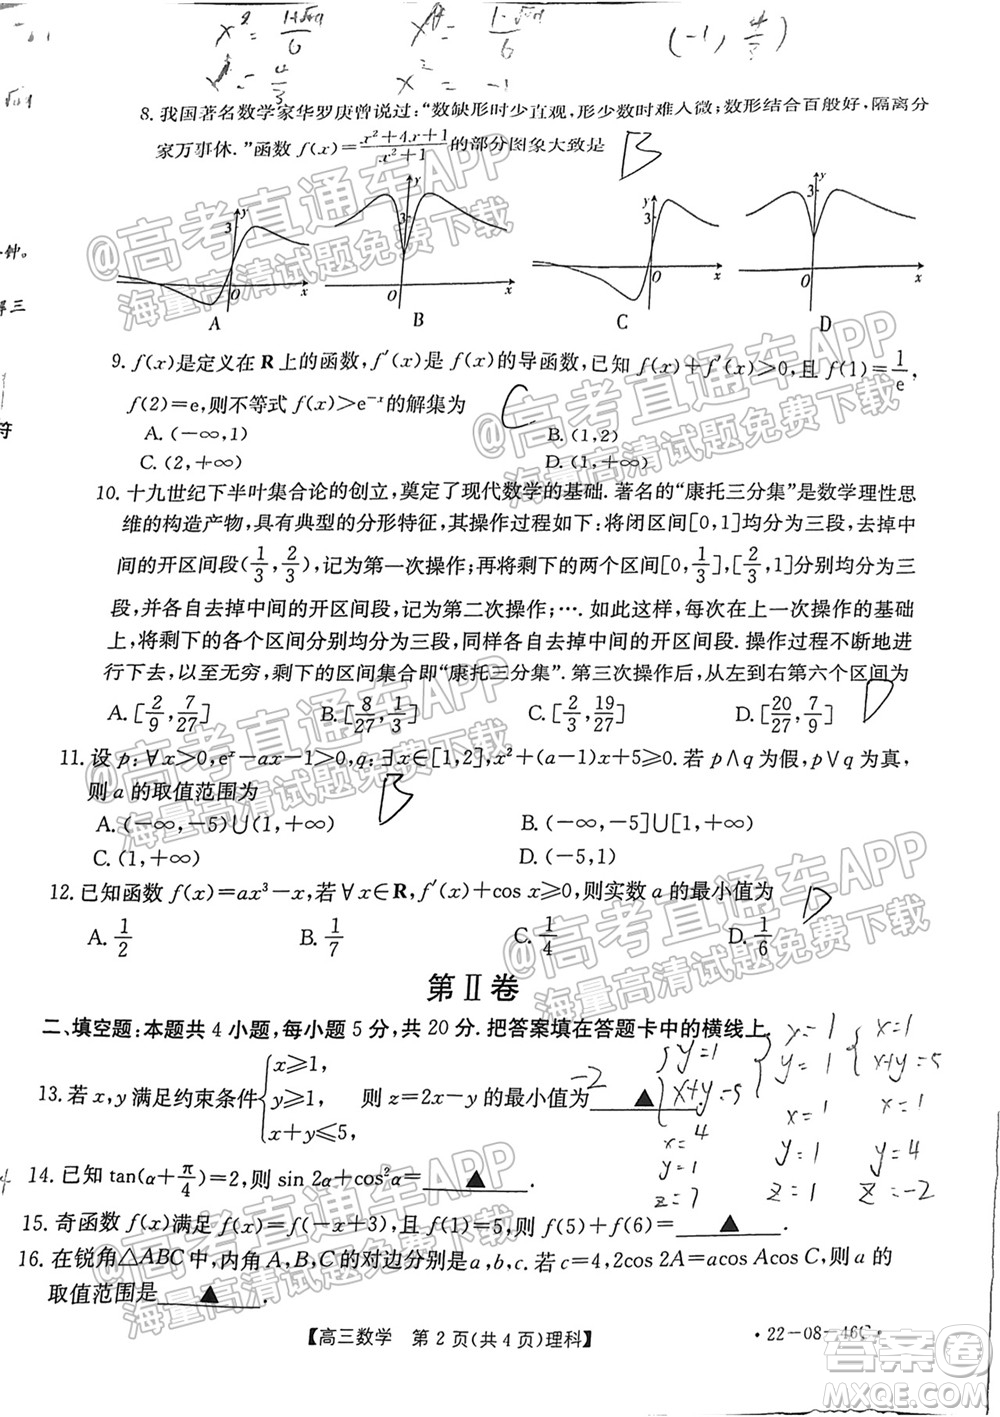 x² = (1+√    )/6    x² = (1-√    )/6    (-1, 4/3)
x² = 4/3    x² = -1
8. 我国著名数学家华罗庚曾说过：“数缺形时少直观，形少数时难入微；数形结合百般好，隔离分
家万事休.”函数 f(x)=(x²+4x+1)/(x²+1) 的部分图象大致是 B
3 y O x    3 y O x    3 y O x    3 y O x
A    B    C    D
钟。
9. f(x)是定义在 R 上的函数, f′(x)是 f(x)的导函数, 已知 f(x)+f′(x)≥0, 且 f(1)=1/e,
f(2)=e, 则不等式 f(x)>e⁻ˣ 的解集为 C
A. (-∞,1)    B. (1,2)
C. (2,+∞)    D. (1,+∞)
10. 十九世纪下半叶集合论的创立, 奠定了现代数学的基础. 著名的“康托三分集”是数学理性思
维的构造产物, 具有典型的分形特征, 其操作过程如下: 将闭区间[0,1]均分为三段, 去掉中
间的开区间段(1/3, 2/3), 记为第一次操作; 再将剩下的两个区间[0, 1/3], [2/3, 1]分别均分为三
段, 去掉中间的开区间段, 记为第二次操作; …. 如此这样, 每次在上一次操作的基础
上, 将剩下的各个区间分别均分为三段, 同样各自去掉中间的开区间段. 操作过程不断地进
行下去, 以至无穷, 剩下的区间集合即“康托三分集”. 第三次操作后, 从左到右第六个区间为 D
A. [2/9, 7/27]    B. [8/27, 1/3]    C. [2/3, 19/27]    D. [20/27, 7/9]
11. 设 p: ∀x>0, eˣ-ax-1>0, q: ∃x∈[1,2], x²+(a-1)x+5≥0. 若 p∧q 为假, p∨q 为真,
则 a 的取值范围为 B
A. (-∞,-5)∪(1,+∞)    B. (-∞,-5]∪[1,+∞)
C. (1,+∞)    D. (-5,1)
12. 已知函数 f(x)=ax³-x, 若 ∀x∈R, f′(x)+cos x≥0, 则实数 a 的最小值为 D
A. 1/2    B. 1/7    C. 1/4    D. 1/6
第Ⅱ卷
二、填空题: 本题共 4 小题, 每小题 5 分, 共 20 分. 把答案填在答题卡中的横线上.
13. 若 x, y 满足约束条件 { x≥1, y≥1, x+y≤5, 则 z=2x-y 的最小值为 -2 ▲ .
{ y=1 x+y=5    { x=1 y=1    { x=1 x+y=5
x=4    x=1    x=1
y=1    y=1    y=4
z=7    z=1    z=-2
14. 已知 tan(α+π/4)=2, 则 sin 2α+cos²α= ▲ .
15. 奇函数 f(x)满足 f(x)=f(-x+3), 且 f(1)=5, 则 f(5)+f(6)= ▲ .
16. 在锐角△ABC 中, 内角 A, B, C 的对边分别是 a, b, c. 若 c=4, 2cos 2A=acos Acos C, 则 a 的
取值范围是 ▲ .
【高三数学 第 2 页(共 4 页)理科】    ·22-08-46C·
@高考直通车APP
海量高清试题免费下载
@高考直通车APP
海量高清试题免费下载
@高考直通车APP
海量高清试题免费下载
@高考直通车APP
海量高清试题免费下载
@高考直通车APP
海量高清试题免费下载
答案圈
MXQE.COM